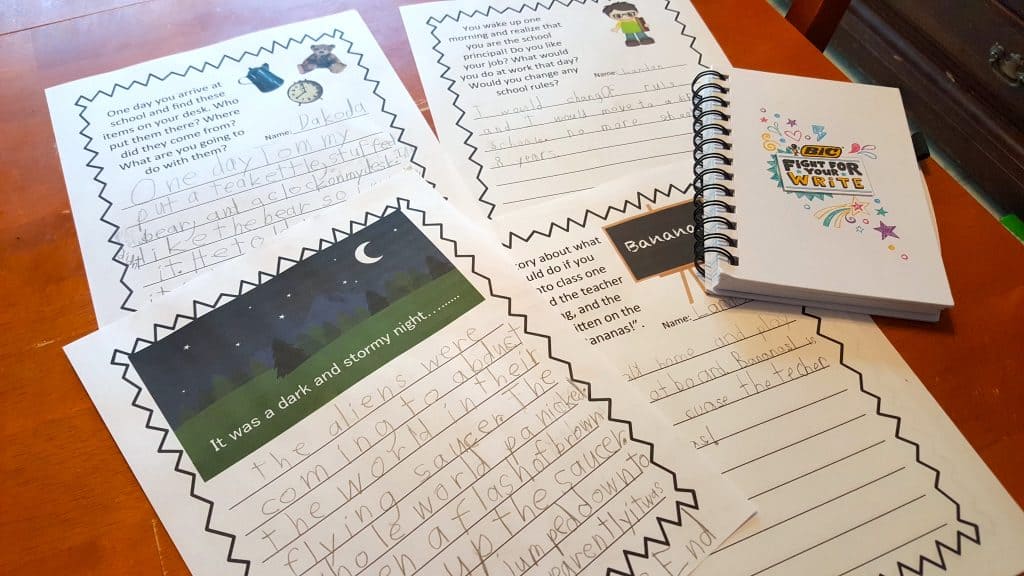 One day you arrive at
school and find these
items on your desk. Who
put them there? Where
did they come from?
What are you going to
do with them?
Name: Dakoda
One day Tommy
put a teakettle, stuffed
bear, and a clock on my desk. I
like the bear so I
it. He to
You wake up one
morning and realize that
you are the school
principal! Do you like
your job? What would
you do at work that day?
Would you change any
school rules?
Name:
I would change rules
and I would move to a big
no more
8 years.
BIC
FIGHT FOR
YOUR
WRITE
It was a dark and stormy night.........
the aliens were
coming to abduct
the world in their
flying saucer. The
hole world panicked
a flash of brown
up the saucer.
jumped down to
it was
End
Banana
ory about what
uld do if you
to class one
d the teacher
g, and the
itten on the
ananas!".
Name:
home and play
at board Bananas! is
the techer